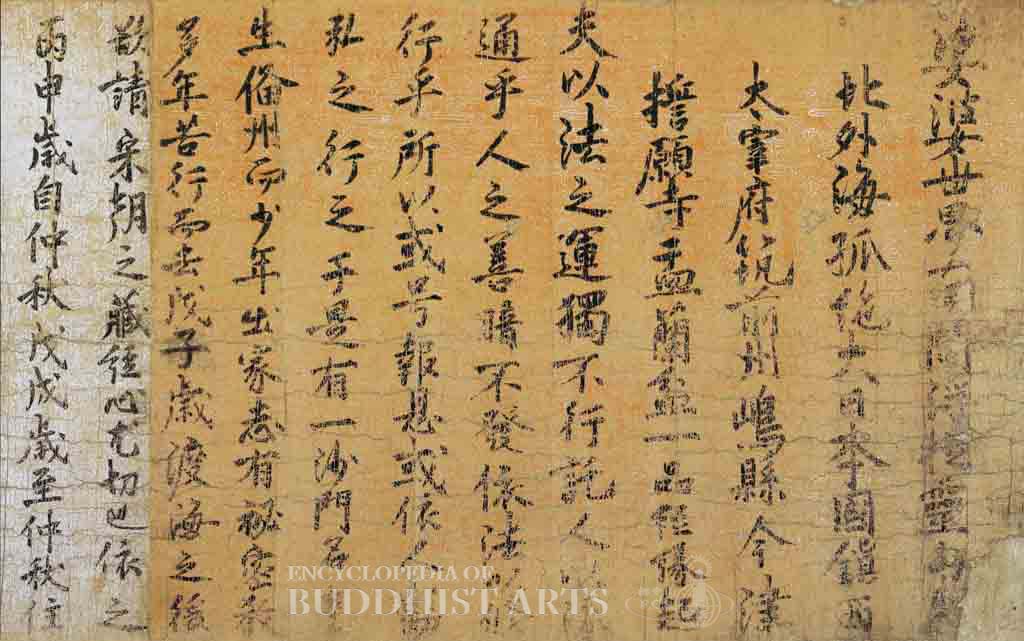 娑婆世界南閻浮提
外海孤絶大日本國鎮西
太宰府筑前州嶋縣今津
願寺盂蘭盆一品経縁起
夫以法之運獨不行託人
通乎人之善暗不發依法
行乎所以或号報恩或依人
弘之行之于是有一沙門名
生俻州而少年出家志有秘密
多年苦行而去戊子歳渡海之後
欲請宋朝之蔵経心尤切也依之
丙申歳自仲秋戊戌歳至仲秋住
ENCYCLOPEDIA OF
BUDDHIST ARTS